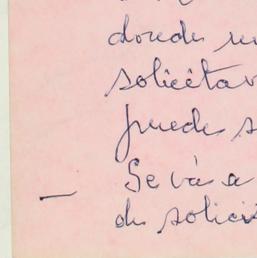 donde
solicita
puede s
— Se và a
de solici